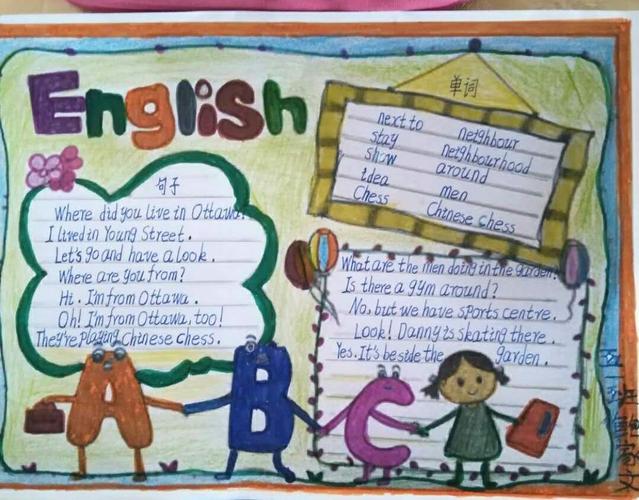 English
单词
next to neighbour
stay neighbourhood
show around
idea men
Chess Chinese chess
句子
Where did you live in Ottawa?
I lived in Young Street.
Let's go and have a look.
Where are you from?
Hi. I'm from Ottawa.
Oh! I'm from Ottawa, too!
They're playing Chinese chess.
What are the men doing in the garden?
Is there a gym around?
No, but we have sports centre.
Look! Danny is skating there.
Yes. It's beside the garden.
A B C